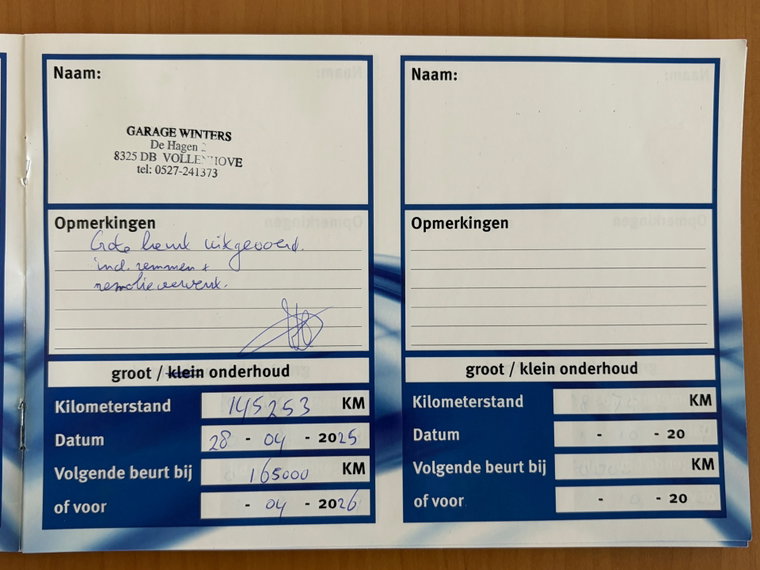 Naam:
GARAGE WINTERS
De Hagen 2
8325 DB VOLLENHOVE
tel: 0527-241373
Opmerkingen
Grote beurt uitgevoerd.
incl. remmen +
groot / klein onderhoud
Kilometerstand 145253 KM
Datum 28 - 04 - 2025
Volgende beurt bij 165000 KM
of voor - 04 - 2026
Naam:
Opmerkingen
groot / klein onderhoud
Kilometerstand KM
Datum - - 20
Volgende beurt bij KM
of voor - - 20